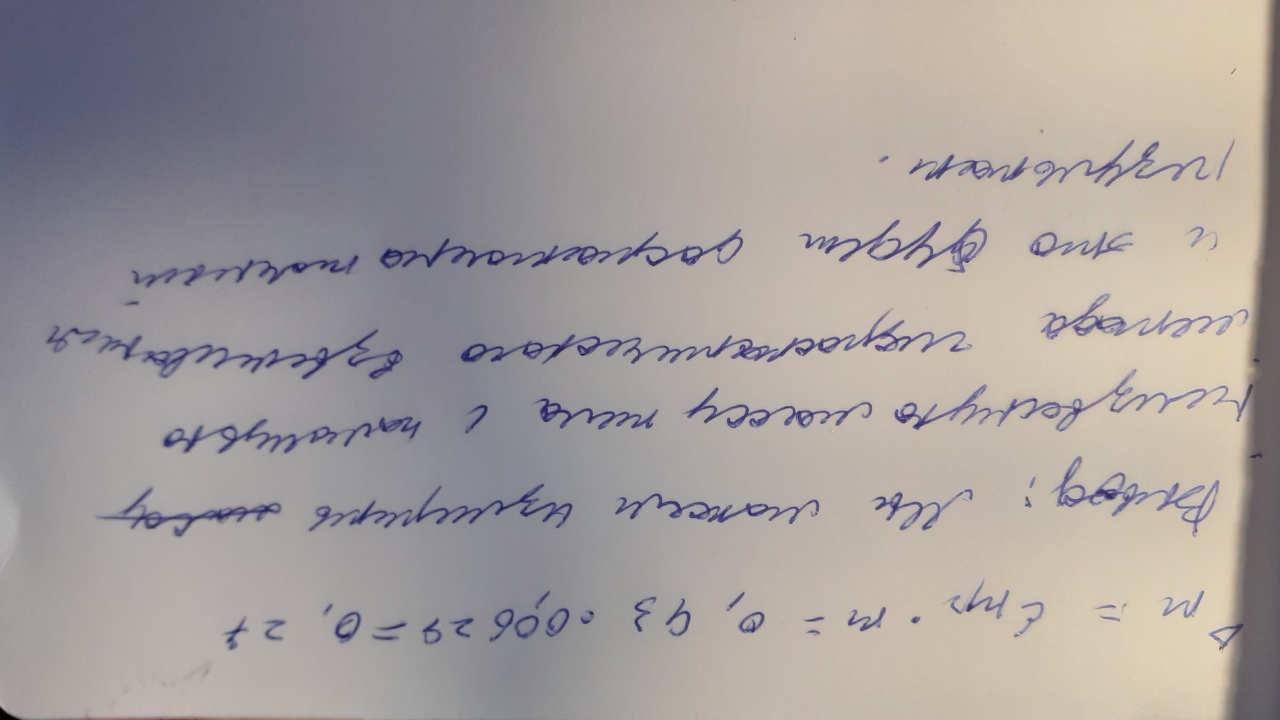 Δm = Eпр · m = 0,43 · 0,0629 = 0,27
Вывод: Мы можем измерить массу
неизвестную массу тела с помощью
метода гидростатического взвешивания
и это будет достаточно точный
результат.